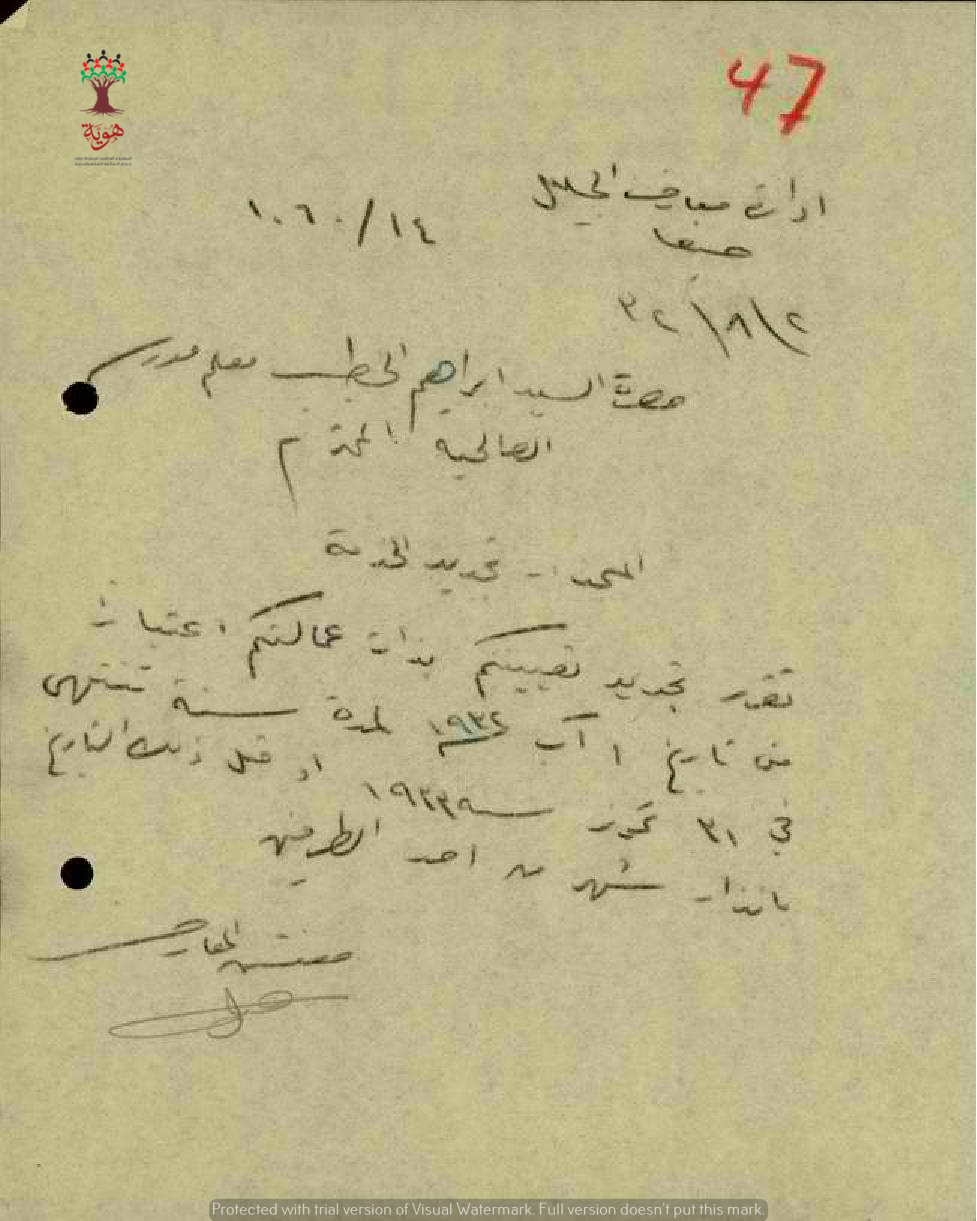 47
هوية
ادارة معارف الجليل
١٠٦٠/١٤
حيفا
٢/٨/٣٢
حضرة السيد ابراهيم الخطيب معلم مدرسة
الصالحية المحترم
تجديد الخدمة
تقرر تجديد تعيينكم بذات عمالتكم اعتبارا
من تاريخ ١ آب ١٩٣٢ لمدة سنة تنتهي
في ٣١ تموز سنة ١٩٣٣ او قبل ذلك التاريخ
بانذار شهر من احد الطرفين
مفتش المعارف
Protected with trial version of Visual Watermark. Full version doesn't put this mark.